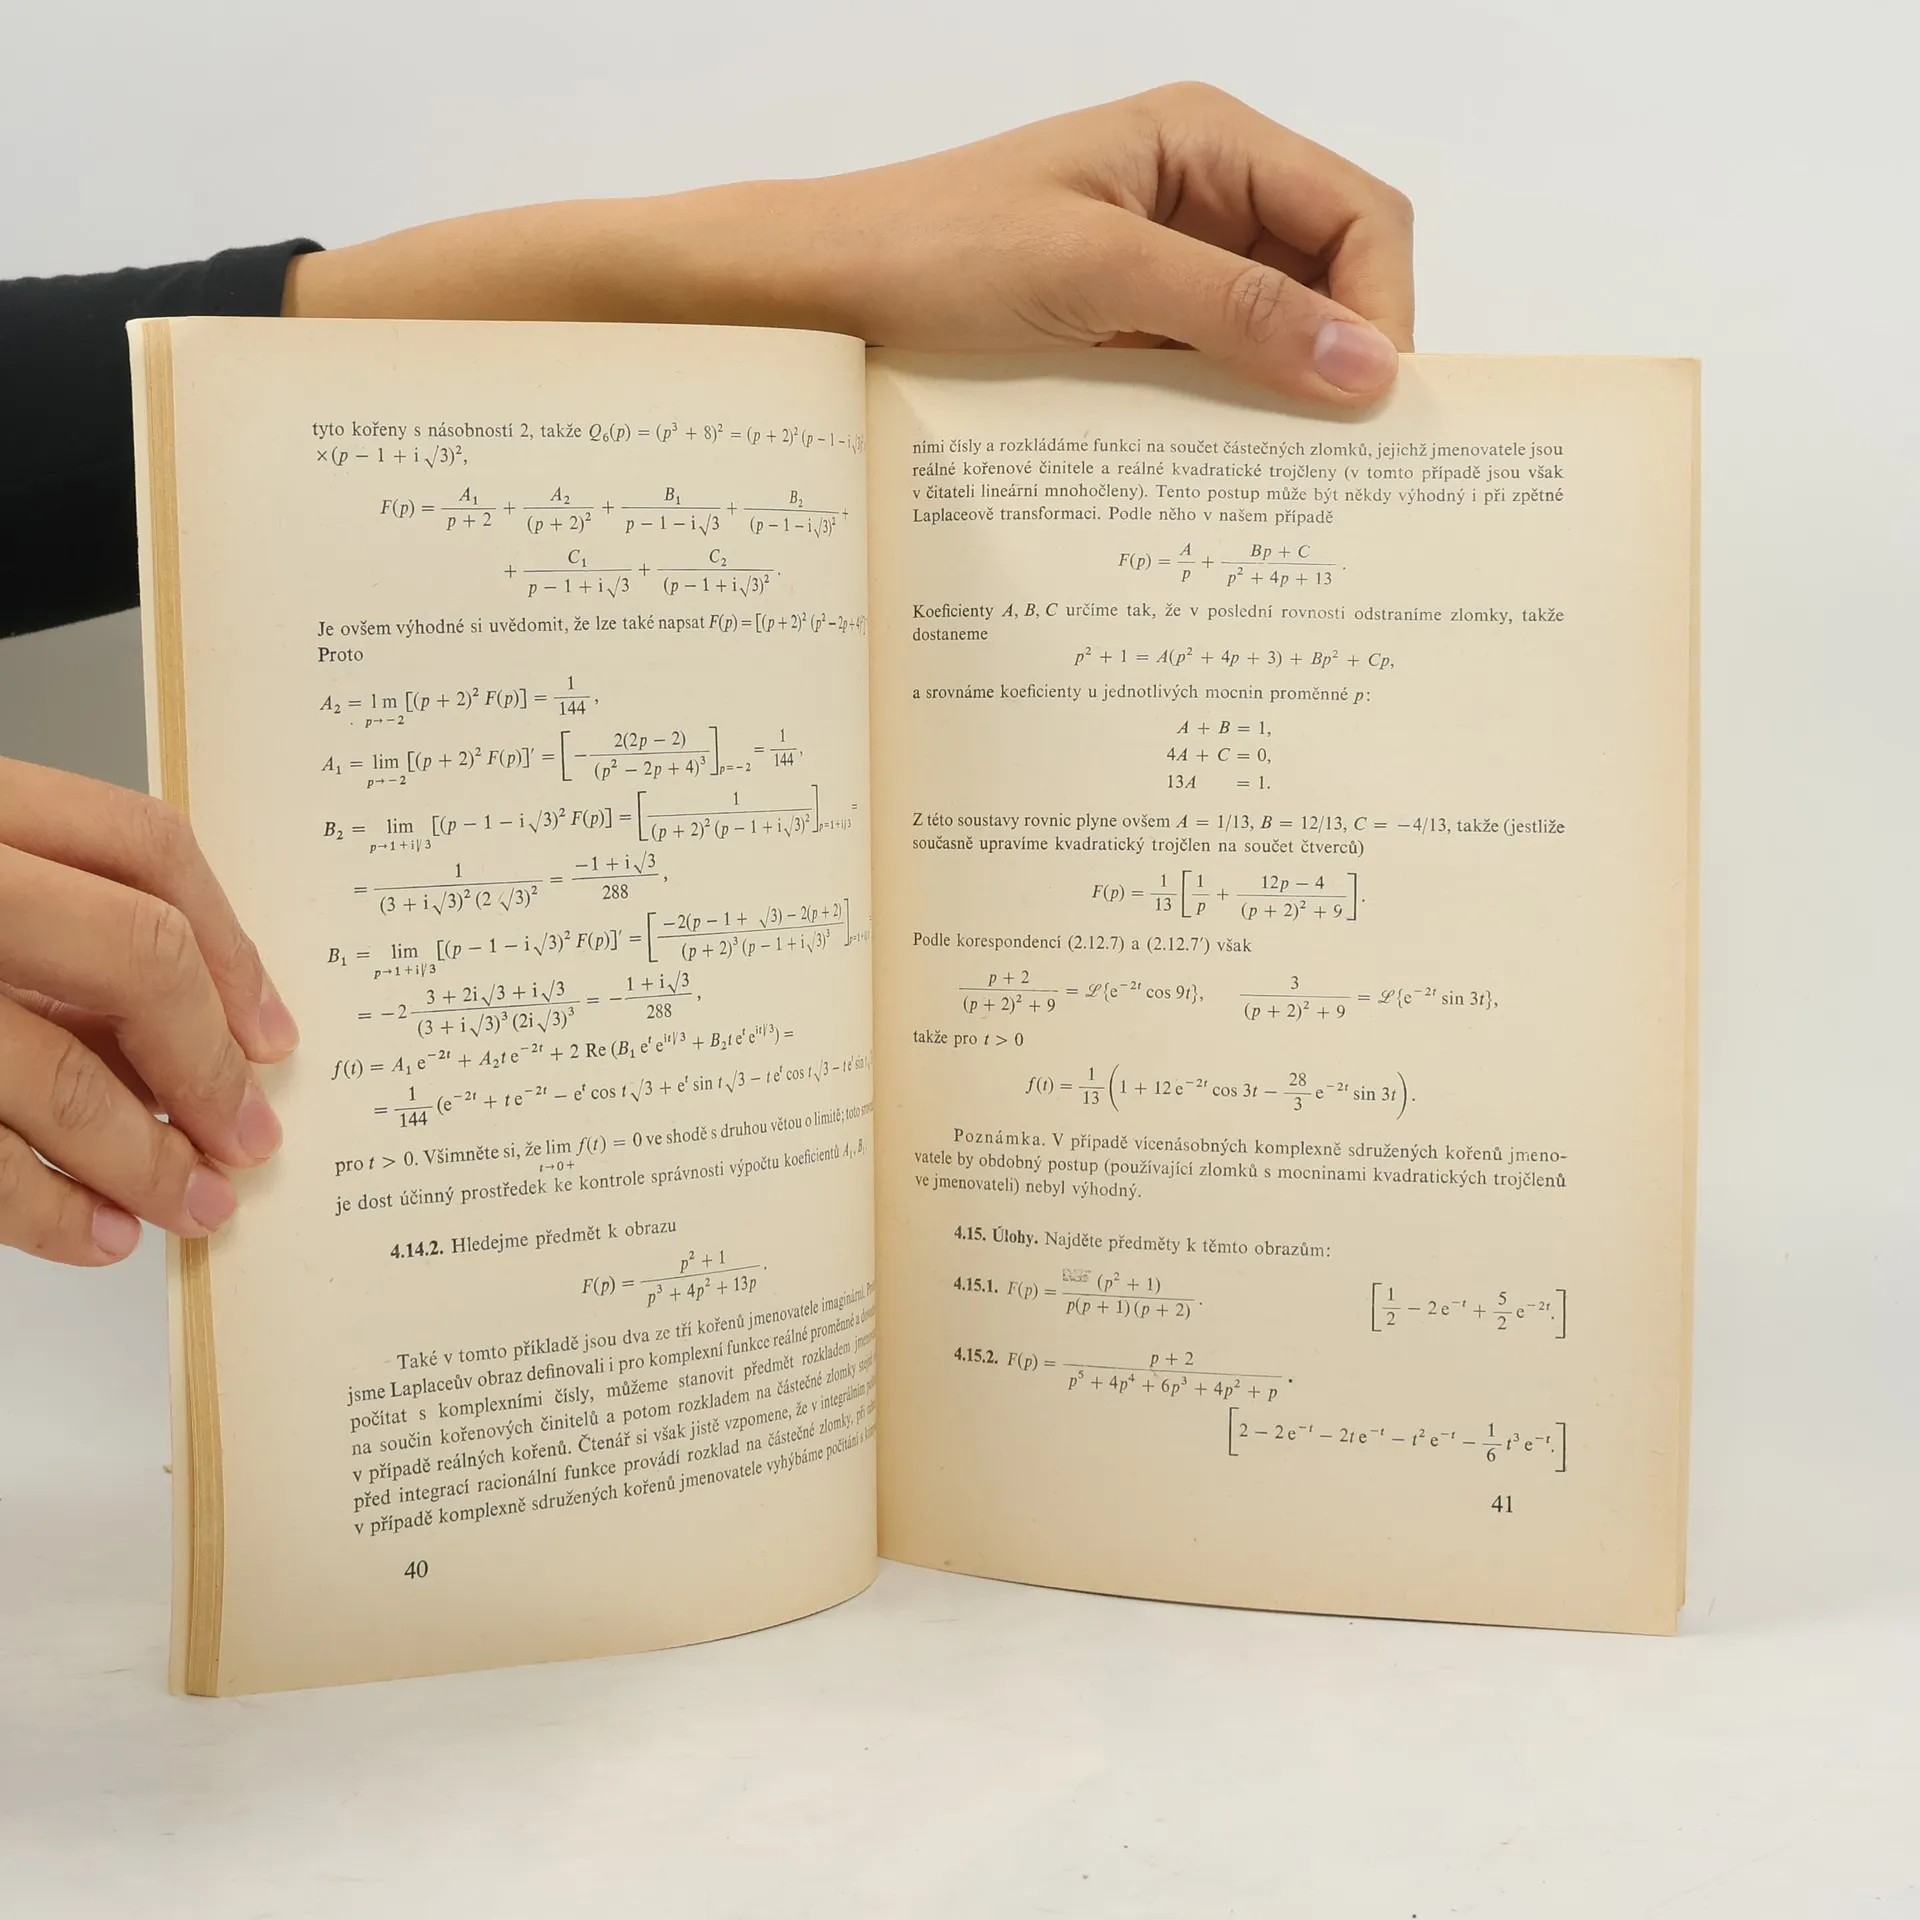 tyto kořeny s násobností 2, takže Q₆(p) = (p³ + 8)² = (p + 2)² (p − 1 − i√3)²
×(p − 1 + i√3)²,
F(p) = A₁/(p + 2) + A₂/(p + 2)² + B₁/(p − 1 − i√3) + B₂/(p − 1 − i√3)² +
+ C₁/(p − 1 + i√3) + C₂/(p − 1 + i√3)².
Je ovšem výhodné si uvědomit, že lze také napsat F(p) = [(p + 2)² (p² − 2p + 4)²]
Proto
A₂ = lm [(p + 2)² F(p)] = 1/144,
p→−2
A₁ = lim [(p + 2)² F(p)]′ = [− 2(2p − 2)/(p² − 2p + 4)³]p=−2 = 1/144,
p→−2
B₂ = lim [(p − 1 − i√3)² F(p)] = [1/((p + 2)² (p − 1 + i√3)²]p=1+i√3 =
p→1+i√3
= 1/((3 + i√3)² (2√3)²) = (−1 + i√3)/288,
B₁ = lim [(p − 1 − i√3)² F(p)]′ = [(−2(p − 1 + √3) − 2(p + 2))/((p + 2)³ (p − 1 + i√3)³)]p=1+i√3 =
p→1+i√3
= −2 (3 + 2i√3 + i√3)/((3 + i√3)³ (2i√3)³) = − (1 + i√3)/288,
f(t) = A₁ e⁻²ᵗ + A₂t e⁻²ᵗ + 2 Re (B₁ eᵗ e^(it√3) + B₂t eᵗ e^(it√3)) =
= 1/144 (e⁻²ᵗ + t e⁻²ᵗ − eᵗ cos t√3 + eᵗ sin t√3 − t eᵗ cos t√3 − t eᵗ sin t√
pro t > 0. Všimněte si, že lim f(t) = 0 ve shodě s druhou větou o limitě; toto
t→0+
je dost účinný prostředek ke kontrole správnosti výpočtu koeficientů A₁, B₁.
4.14.2. Hledejme předmět k obrazu
F(p) = (p² + 1)/(p³ + 4p² + 13p).
Také v tomto příkladě jsou dva ze tří kořenů jmenovatele imaginární.
jsme Laplaceův obraz definovali i pro komplexní funkce reálné proměnné a
počítat s komplexními čísly, můžeme stanovit předmět rozkladem
na součin kořenových činitelů a potom rozkladem na částečné zlomky
v případě reálných kořenů. Čtenář si však jistě vzpomene, že v integrálním
před integrací racionální funkce provádí rozklad na částečné zlomky, při
v případě komplexně sdružených kořenů jmenovatele vyhýbáme počítání s
40
ními čísly a rozkládáme funkci na součet částečných zlomků, jejichž jmenovatele jsou
reálné kořenové činitele a reálné kvadratické trojčleny (v tomto případě jsou však
v čitateli lineární mnohočleny). Tento postup může být někdy výhodný i při zpětné
Laplaceově transformaci. Podle něho v našem případě
F(p) = A/p + (Bp + C)/(p² + 4p + 13).
Koeficienty A, B, C určíme tak, že v poslední rovnosti odstraníme zlomky, takže
dostaneme
p² + 1 = A(p² + 4p + 3) + Bp² + Cp,
a srovnáme koeficienty u jednotlivých mocnin proměnné p:
A + B = 1,
4A + C = 0,
13A = 1.
Z této soustavy rovnic plyne ovšem A = 1/13, B = 12/13, C = −4/13, takže (jestliže
současně upravíme kvadratický trojčlen na součet čtverců)
F(p) = 1/13 [1/p + (12p − 4)/((p + 2)² + 9)].
Podle korespondencí (2.12.7) a (2.12.7′) však
(p + 2)/((p + 2)² + 9) = ℒ{e⁻²ᵗ cos 9t}, 3/((p + 2)² + 9) = ℒ{e⁻²ᵗ sin 3t},
takže pro t > 0
f(t) = 1/13 (1 + 12 e⁻²ᵗ cos 3t − 28/3 e⁻²ᵗ sin 3t).
Poznámka. V případě vícenásobných komplexně sdružených kořenů jmeno-
vatele by obdobný postup (používající zlomků s mocninami kvadratických trojčlenů
ve jmenovateli) nebyl výhodný.
4.15. Úlohy. Najděte předměty k těmto obrazům:
4.15.1. F(p) = (p² + 1)/(p(p + 1)(p + 2)). [1/2 − 2 e⁻ᵗ + 5/2 e⁻²ᵗ.]
4.15.2. F(p) = (p + 2)/(p⁵ + 4p⁴ + 6p³ + 4p² + p).
[2 − 2 e⁻ᵗ − 2t e⁻ᵗ − t² e⁻ᵗ − 1/6 t³ e⁻ᵗ.]
41